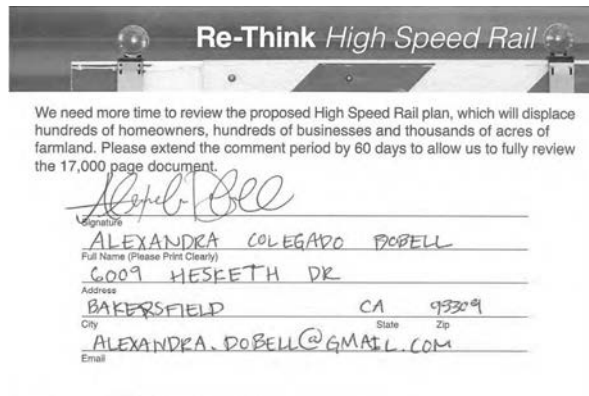 Re-Think High Speed Rail
We need more time to review the proposed High Speed Rail plan, which will displace
hundreds of homeowners, hundreds of businesses and thousands of acres of
farmland. Please extend the comment period by 60 days to allow us to fully review
the 17,000 page document.
Signature
ALEXANDRA COLEGADO DOBELL
Full Name (Please Print Clearly)
6009 HESKETH DR
Address
BAKERSFIELD CA 93309
City State Zip
ALEXANDRA.DOBELL@GMAIL.COM
Email